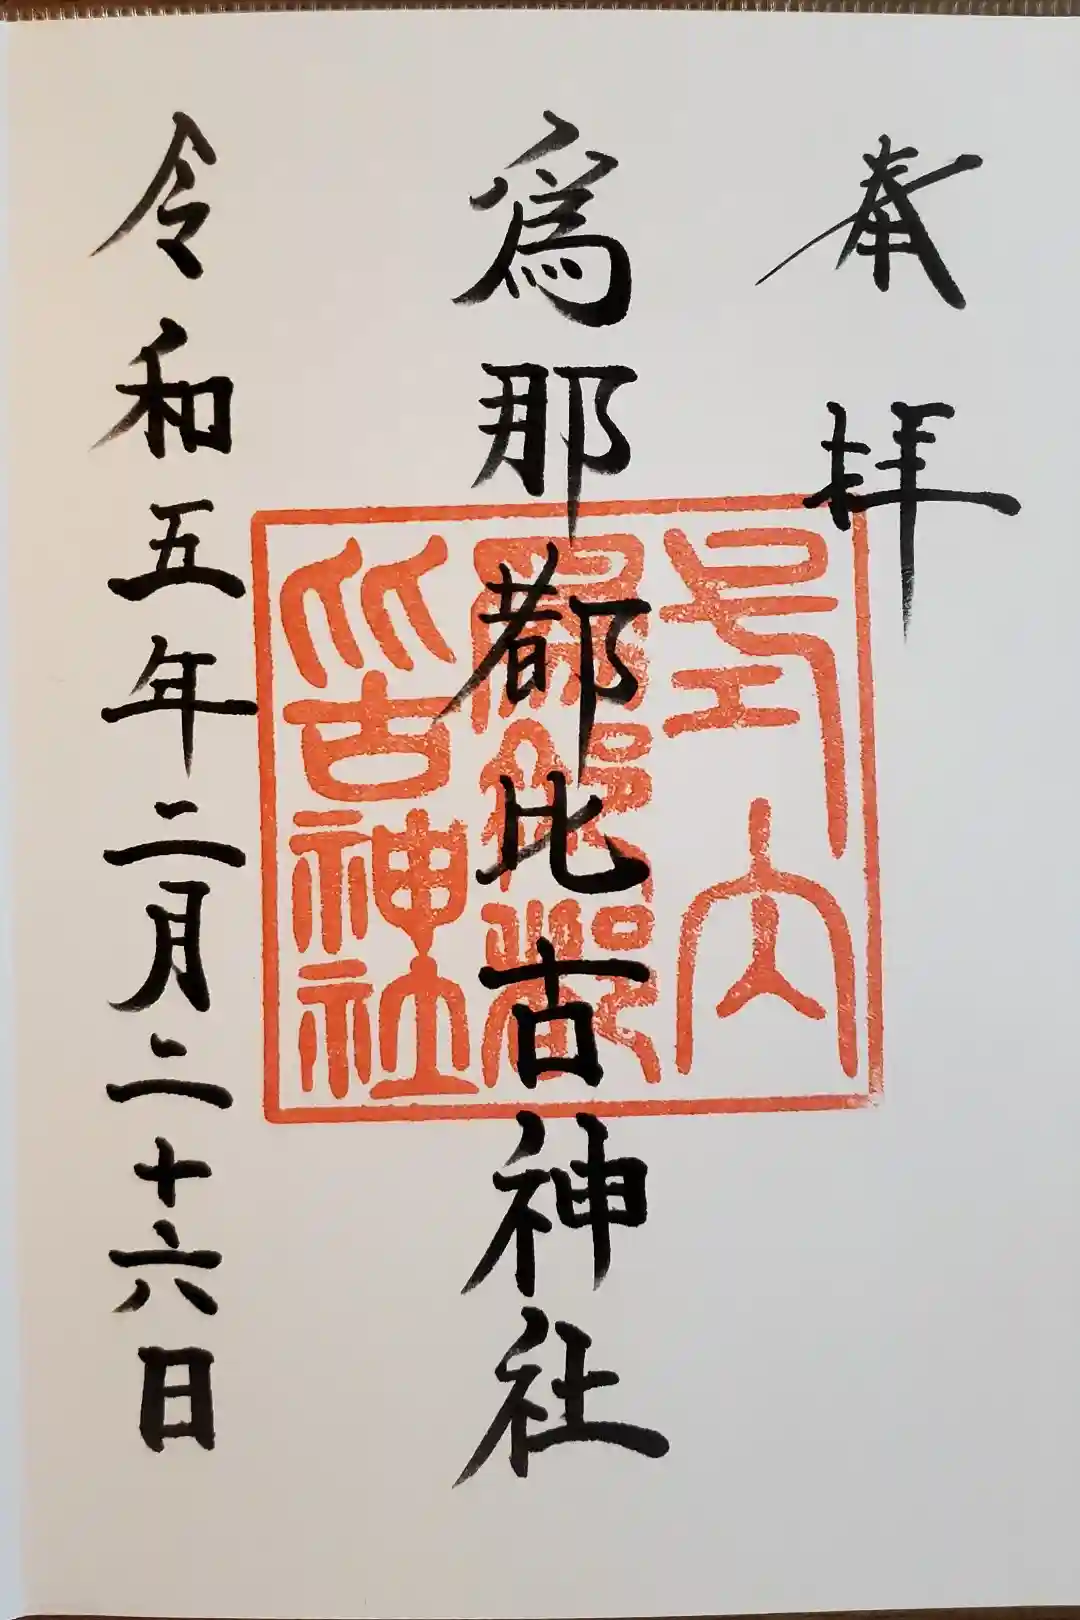 奉拝
式内
爲那都比古神社
爲那都比古神社
令和五年二月二十六日